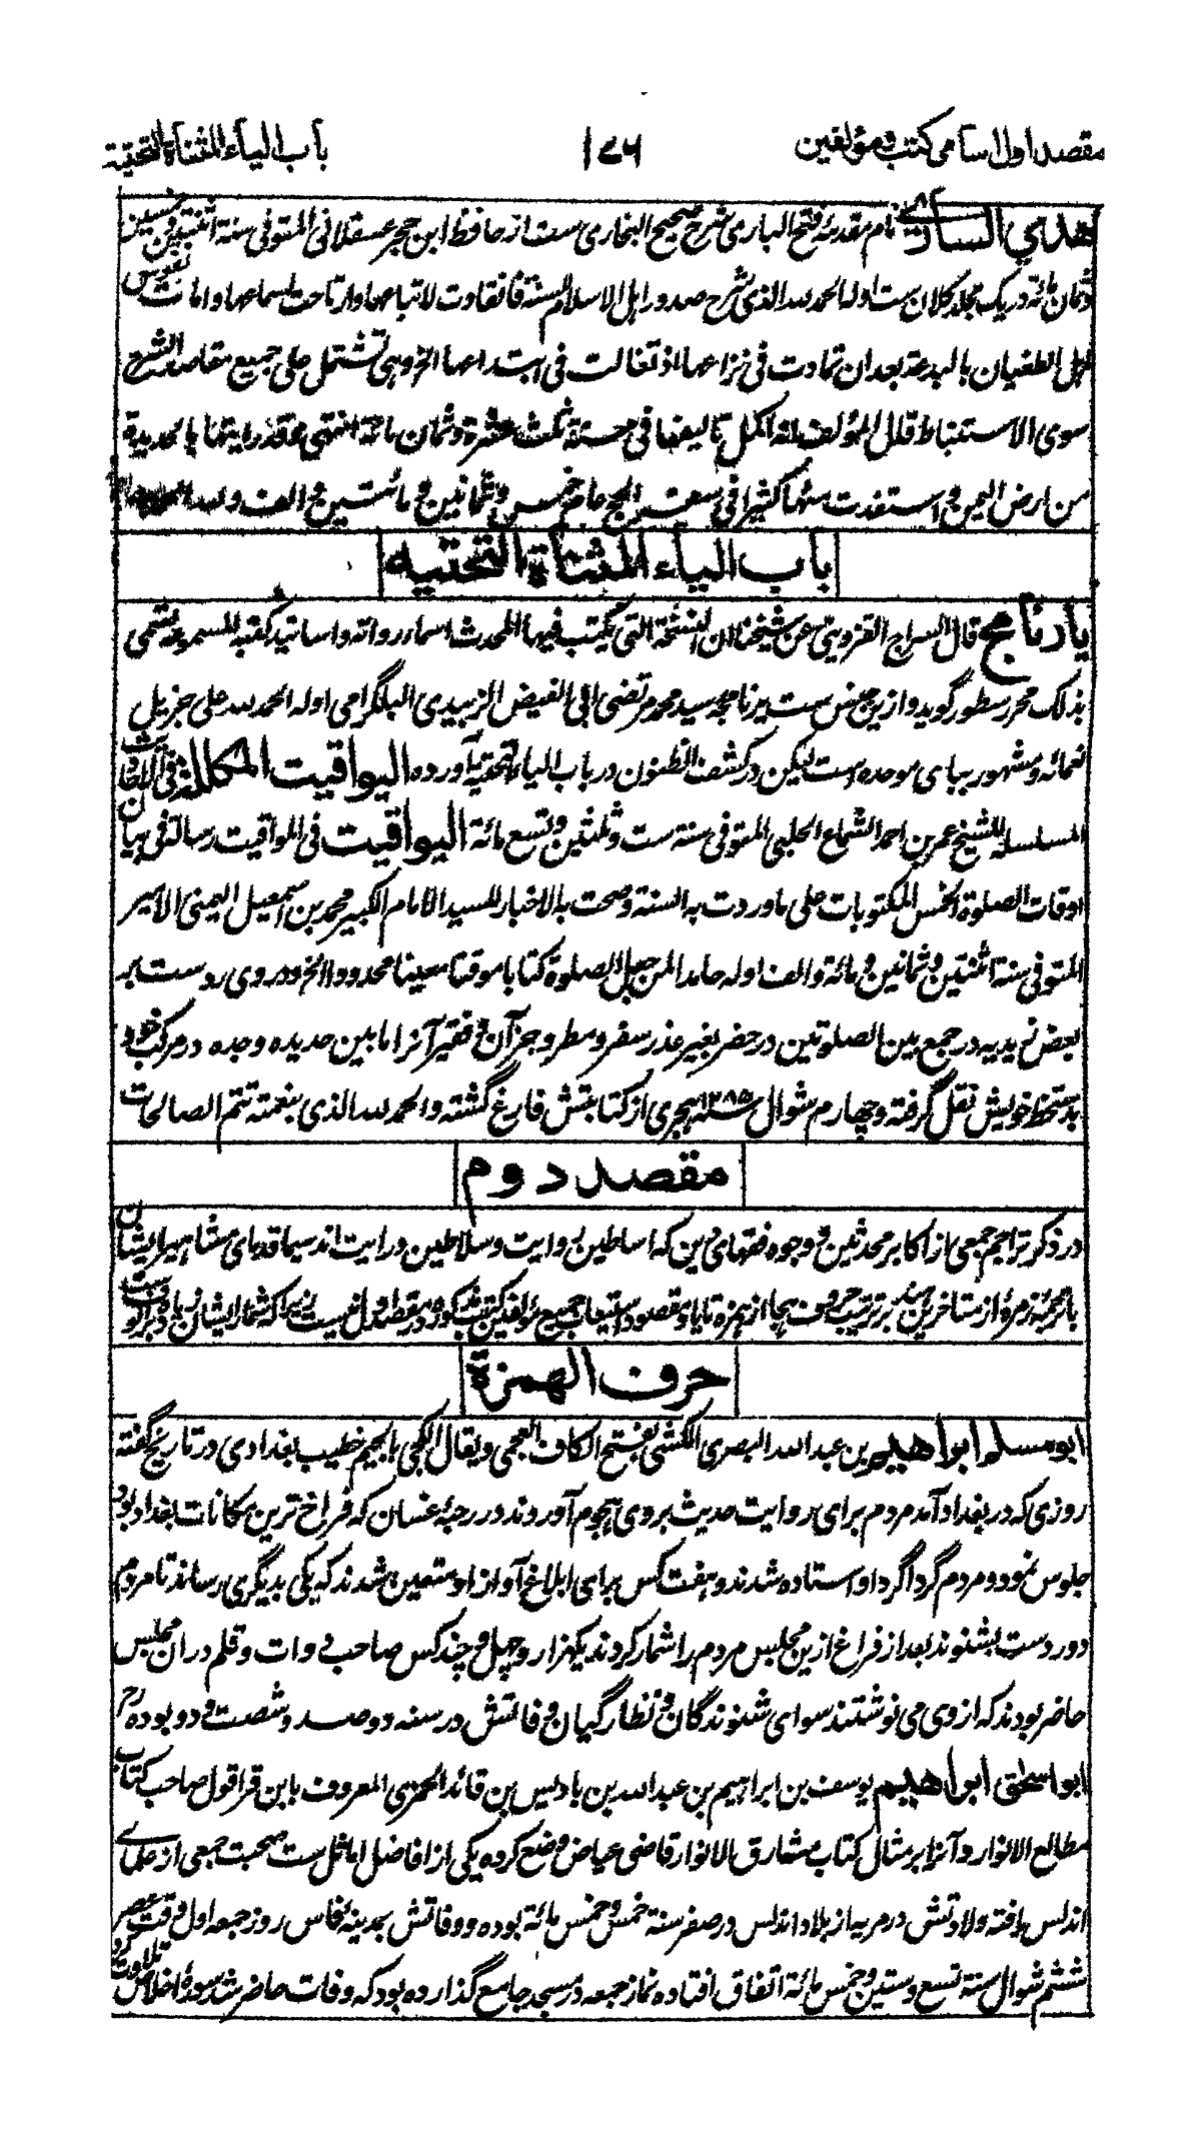 مقصد اول اسامی کتب و مؤلفین
۱۷۶
باب الیاء المثناة التحتیة
هدي الساري نام مقدمهٔ فتح الباری شرح صحیح البخاری ست از حافظ ابن حجر عسقلانی المتوفی سنة اثنتین و خمسین
و ثمان مائة و در یک مجلد کلان ست اوله الحمد لله الذی شرح صدور اهل الاسلام للسنة فانقادت لاتباعها و ارتاحت لسماعها و امانت نفوس
اهل الطغیان بالبدعة بعد ان تمادت فی نزاعها اذ تغالت فی ابتداعها الخ و هی تشتمل علی جمیع مقاصد الشرح
سوی الاستنباط قال المؤلف انه اکمل تالیفها فی سنة ثلث عشرة و ثمان مائة انتهی و قد رایتها بالحدیدة
من ارض الیمن و استفدت منها کثیرا فی سفر الحج عام خمس و ثمانین و مائتین و الف و لله الحمد
باب الیاء المثناة التحتیه
یارنامج قال السراج القزوینی عن شیخنا ان النسخة التی یکتب فیها المحدث اسماء رواته و اسانید کتبه المسموعة تسمی
بذلک محرر سطور گوید و ازین جنس ست برنامجه سید محمد مرتضی ابی الفیض الزبیدی البلگرامی اوله الحمد لله علی جزیل
نعمائه و مشهور ببای موحده است لیکن در کشف الظنون در باب الیاء التحتیة آورده الیواقیت المکللة فی الاحادیث
المسلسلة للشیخ عمر بن احمد الشماع الحلبی المتوفی سنة ست و ثلثین و تسع مائة الیواقیت فی المواقیت رسالة فی بیان
اوقات الصلوة الخمس المکتوبات علی ما وردت به السنة و صحت بالاخبار للسید الامام الکبیر محمد بن اسمعیل الیمنی الامیر
المتوفی سنة اثنتین و ثمانین و مائة و الف اوله حامدا لمن جعل الصلوة کتابا موقتا معینا محدودا الخ و در وی رد ست بر
بعض زیدیه در جمع بین الصلوتین در حضر بغیر عذر سفر و مطر و جز آن و فقیر آنرا ما بین حدیده و جده در مرکب خود
بدستخط خویش نقل گرفته و چهارم شوال سنه ۱۲۸۵ هجری از کتابتش فارغ گشته و الحمد لله الذی بنعمته تتم الصالحات
مقصد دوم
در ذکر تراجم جمعی از اکابر محدثین و وجوه فقهای دین که اساطین روایت و سلاطین درایت اند سیما قدمای مشاهیر ایشان
با ترجمهٔ زمرهٔ از متاخرین هند بر ترتیب حروف هجا از همزه تا یا و مقصود استیعاب جمیع مؤلفین کتب مذکوره در مقصد اول نیست زیرا که شمار ایشان
حرف الهمزة
ابو مسلم ابراهیم بن عبد الله البصری الکشی بفتح الکاف العجمی و یقال الکجی بالجیم خطیب بغدادی در تاریخ گفته
روزی که در بغداد آمد مردم برای روایت حدیث بروی هجوم آوردند در رحبهٔ غسان که فراخ ترین مکانات بغداد بود
جلوس نمود و مردم گرداگرد او استاده شدند و هفت کس برای ابلاغ آواز او متعین شدند که یکی بدیگری رساند تا مردم
دور دست بشنوند بعد از فراغ ازین مجلس مردم را شمار کردند یکهزار و چهل و چند کس صاحب دوات و قلم دران مجلس
حاضر بودند که از وی می نوشتند سوای شنوندگان و نظارگیان وفاتش در سنه دو صد و شصت و دو بوده رح
ابو اسحق ابراهیم یوسف بن ابراهیم بن عبد الله بن بادیس بن قائد الحمزی المعروف بابن قراقول صاحب کتاب
مطالع الانوار و آنرا بر مثال کتاب مشارق الانوار قاضی عیاض وضع کرده یکی از افاضل اماثل ست صحبت جمعی از علمای
اندلس یافته ولادتش در مریه از بلاد اندلس در صفر سنة خمس و خمس مائة بوده و وفاتش بمدینهٔ فاس روز جمعه اول وقت عصر
ششم شوال سنة تسع و ستین و خمس مائة اتفاق افتاده نماز جمعه در مسجد جامع گذارده بود که وفات حاضر شد سورهٔ اخلاص تلاوت کرد